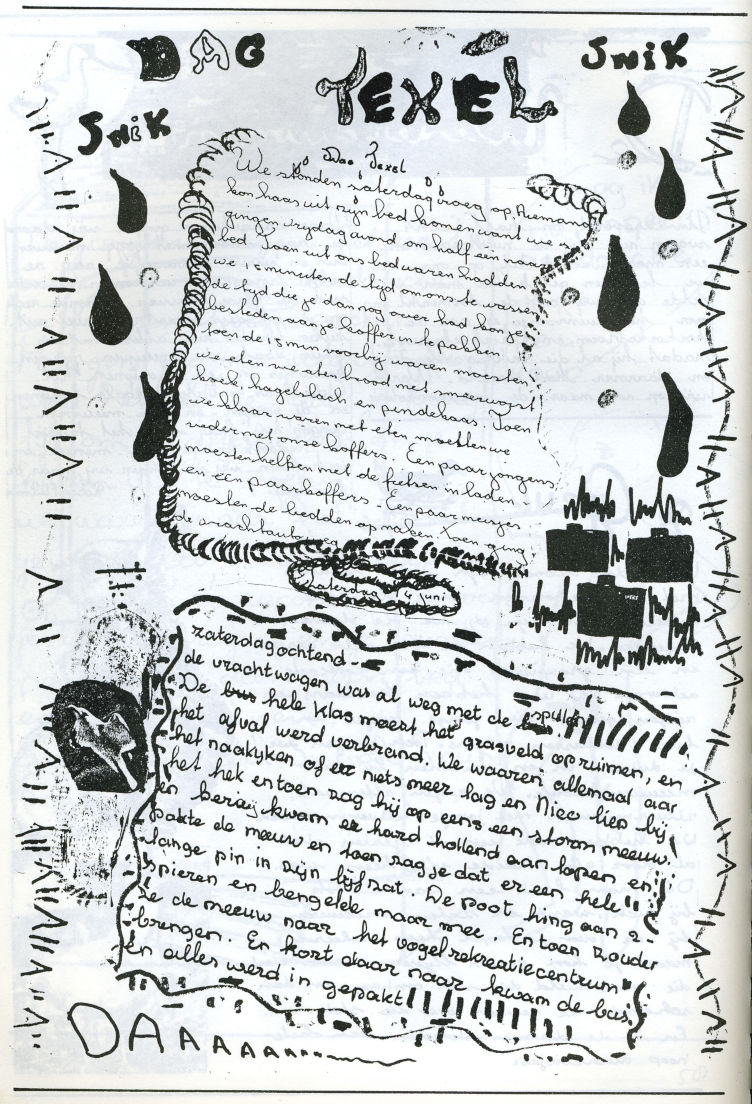 DAG
SNIK
TEXEL
SNIK
Dag Texel
We stonden zaterdag vroeg op. Niemand
kon haas uit zijn bed komen want we
gingen vrydagavond om half een naar
bed. Toen uit ons bed waren hadden
we 15 minuten de tijd om ons te wassen
de tijd die je dan nog over had kon je
besteden aan je koffer in te pakken.
Toen de 15 min voorbij waren moesten
we eten we aten brood met smeerworst
koek, hagelslach en pindekaas. Toen
we klaar waren met eten mochten we
veder met onse koffers. Een paar jongens
moesten helpen met de fietsen in laden
en een paar koffers. Een paar meisjes
moesten de bedden op maken. Toen ging
de vrachtauto weg
Zaterdag 4 juni
zaterdagochtend
de vrachtwagen was al weg met de spullen
De hele klas moest het grasveld opruimen, en
het afval werd verbrand. We waaren allemaal aan
het nakijken of er niets meer lag en Nico liep bij
het hek en toen zag hij op eens een storm meeuw.
en kwam er hard hollend aan lopen en
pakte de meeuw en toen zag je dat er een hele
lange pin in zijn lijf zat. De poot hing aan 2-
spieren en bengelde maar mee. En toen zouden
ze de meeuw naar het vogelrekreatiecentrum
brengen. En kort daar naar kwam de bus.
En alles werd in gepakt!
DAAAAAAAAA